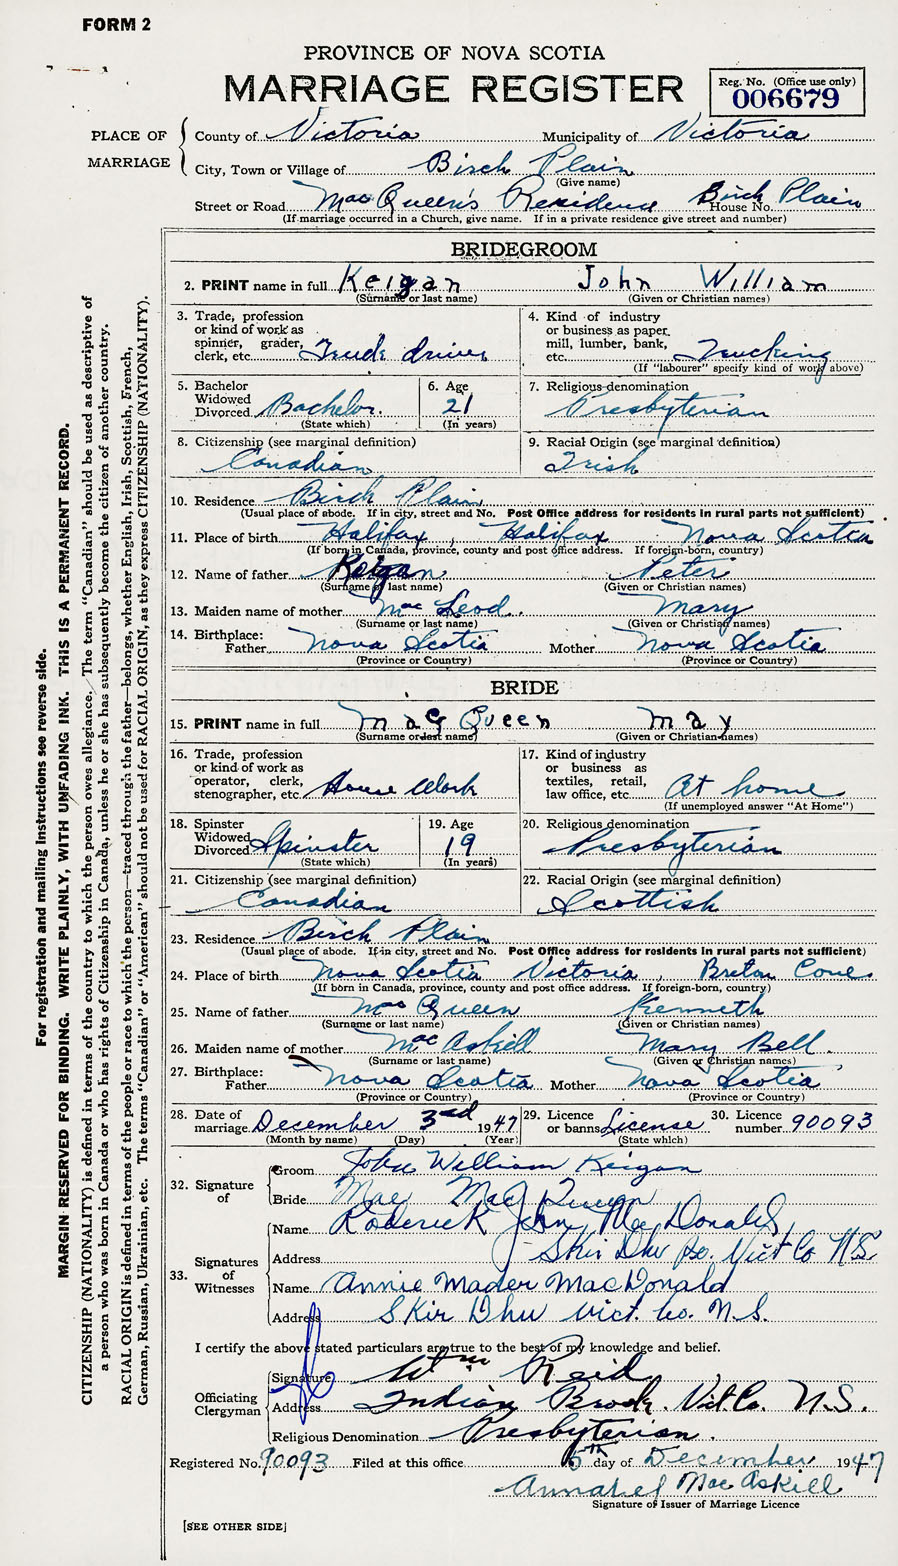 FORM 2
PROVINCE OF NOVA SCOTIA
MARRIAGE REGISTER
Reg. No. (Office use only)
006679
PLACE OF MARRIAGE
County of Victoria Municipality of Victoria
City, Town or Village of Birch Plain
(Give name)
Street or Road MacQueen's Residence House No. Birch Plain
(If marriage occurred in a Church, give name. If in a private residence give street and number)
BRIDEGROOM
2. PRINT name in full Keigan John William
(Surname or last name) (Given or Christian names)
3. Trade, profession or kind of work as spinner, grader, clerk, etc. Truck driver
4. Kind of industry or business as paper mill, lumber, bank, etc. Trucking
(If "labourer" specify kind of work above)
5. Bachelor Widowed Divorced Bachelor.
(State which)
6. Age 21
(In years)
7. Religious denomination Presbyterian
8. Citizenship (see marginal definition) Canadian
9. Racial Origin (see marginal definition) Irish
10. Residence Birch Plain
(Usual place of abode. If in city, street and No. Post Office address for residents in rural parts not sufficient)
11. Place of birth Halifax, Halifax Nova Scotia
(If born in Canada, province, county and post office address. If foreign-born, country)
12. Name of father Keigan Peter
(Surname or last name) (Given or Christian names)
13. Maiden name of mother MacLeod. Mary
(Surname or last name) (Given or Christian names)
14. Birthplace: Father Nova Scotia Mother Nova Scotia
(Province or Country) (Province or Country)
BRIDE
15. PRINT name in full MacQueen May
(Surname or last name) (Given or Christian names)
16. Trade, profession or kind of work as operator, clerk, stenographer, etc. House Work
17. Kind of industry or business as textiles, retail, law office, etc. At home
(If unemployed answer "At Home")
18. Spinster Widowed Divorced Spinster
(State which)
19. Age 19
(In years)
20. Religious denomination Presbyterian
21. Citizenship (see marginal definition) Canadian
22. Racial Origin (see marginal definition) Scottish
23. Residence Birch Plain
(Usual place of abode. If in city, street and No. Post Office address for residents in rural parts not sufficient)
24. Place of birth Nova Scotia Victoria, Breton Cove
(If born in Canada, province, county and post office address. If foreign-born, country)
25. Name of father MacQueen Kenneth
(Surname or last name) (Given or Christian names)
26. Maiden name of mother MacAskill Mary Bell.
(Surname or last name) (Given or Christian names)
27. Birthplace: Father Nova Scotia Mother Nova Scotia
(Province or Country) (Province or Country)
28. Date of marriage December 3rd 1947
(Month by name) (Day) (Year)
29. Licence or banns License
(State which)
30. Licence number 90093
32. Signature of
Groom John William Keigan
Bride Mae MacQueen
33. Signatures of Witnesses
Name Roderick John MacDonald
Address Skir Dhu Po. Vict Co N.S.
Name Annie Mader MacDonald
Address Skir Dhu Vict. Co. N.S.
I certify the above stated particulars are true to the best of my knowledge and belief.
Officiating Clergyman
Signature Wm Reid
Address Indian Brook. Vict. Co. N.S.
Religious Denomination Presbyterian.
Registered No. 90093 Filed at this office 5th day of December 1947
Annabel MacAskill
Signature of Issuer of Marriage Licence
[SEE OTHER SIDE]
For registration and mailing instructions see reverse side.
MARGIN RESERVED FOR BINDING. WRITE PLAINLY, WITH UNFADING INK. THIS IS A PERMANENT RECORD.
CITIZENSHIP (NATIONALITY) is defined in terms of the country to which the person owes allegiance. The term "Canadian" should be used as descriptive of
a person who was born in Canada or who has rights of Citizenship in Canada, unless he or she has subsequently become the citizen of another country.
RACIAL ORIGIN is defined in terms of the people or race to which the person—traced through the father—belongs, whether English, Irish, Scottish, French,
German, Russian, Ukrainian, etc. The terms "Canadian" or "American" should not be used for RACIAL ORIGIN, as they express CITIZENSHIP (NATIONALITY).